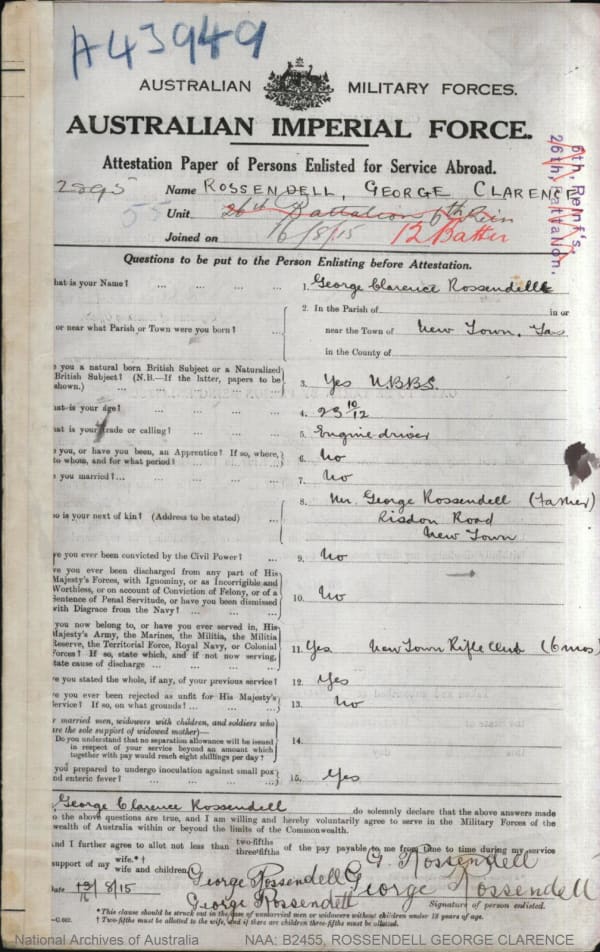 A43949
AUSTRALIAN MILITARY FORCES.
AUSTRALIAN IMPERIAL FORCE.
Attestation Paper of Persons Enlisted for Service Abroad.
2895 Name ROSSENDELL, GEORGE CLARENCE
55 Unit 26th Battalion 6th Rein
Joined on 16/8/15 12 Battn
6th. Reinf's.
26th. Battalion.
Questions to be put to the Person Enlisting before Attestation.
hat is your Name? ... ... ... ... 1. George Clarence Rossendell
2. In the Parish of in or
or near what Parish or Town were you born? ... near the Town of New Town, Tas
in the County of
e you a natural born British Subject or a Naturalized
British Subject? (N.B.—If the latter, papers to be
shown.) ... ... ... ... 3. Yes N.B.B.S.
hat is your age? ... ... ... ... 4. 23 10/12
hat is your trade or calling? ... ... ... 5. Engine-driver
e you, or have you been, an Apprentice? If so, where,
to whom, and for what period? ... ... ... 6. No
e you married?... ... ... ... 7. No
8. Mr. George Rossendell (Father)
o is your next of kin? (Address to be stated) ... Risdon Road
New Town
ve you ever been convicted by the Civil Power? ... 9. No
ve you ever been discharged from any part of His
Majesty's Forces, with Ignominy, or as Incorrigible and
Worthless, or on account of Conviction of Felony, or of a
Sentence of Penal Servitude, or have you been dismissed
with Disgrace from the Navy? ... ... ... 10. No
you now belong to, or have you ever served in, His
Majesty's Army, the Marines, the Militia, the Militia
Reserve, the Territorial Force, Royal Navy, or Colonial
Forces? If so, state which, and if not now serving,
state cause of discharge ... ... ... 11. Yes New Town Rifle Club (6 mos)
ve you stated the whole, if any, of your previous service? 12. Yes
ve you ever been rejected as unfit for His Majesty's
Service? If so, on what grounds? ... ... ... 13. No
r married men, widowers with children, and soldiers who
are the sole support of widowed mother)—
Do you understand that no separation allowance will be issued
in respect of your service beyond an amount which
together with pay would reach eight shillings per day? ... 14.
you prepared to undergo inoculation against small pox
and enteric fever? ... ... ... ... 15. Yes
George Clarence Rossendell do solemnly declare that the above answers made
to the above questions are true, and I am willing and hereby voluntarily agree to serve in the Military Forces of the
wealth of Australia within or beyond the limits of the Commonwealth.
And I further agree to allot not less than two-fifths three-fifths of the pay payable to me from time to time during my service
support of my wife.*† wife and children.
G. Rossendell
Date 16/8/15 George Rossendell George Rossendell
George Rossendell Signature of person enlisted.
*This clause should be struck out in the case of unmarried men or widowers without children under 18 years of age.
† Two-fifths must be allotted to the wife, and if there are children three-fifths must be allotted.
National Archives of Australia NAA: B2455, ROSSENDELL GEORGE CLARENCE